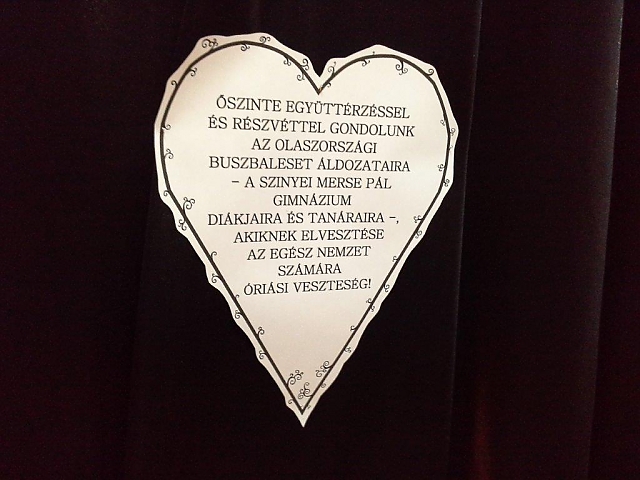 ŐSZINTE EGYÜTTÉRZÉSSEL
ÉS RÉSZVÉTTEL GONDOLUNK
AZ OLASZORSZÁGI
BUSZBALESET ÁLDOZATAIRA
– A SZINYEI MERSE PÁL
GIMNÁZIUM
DIÁKJAIRA ÉS TANÁRAIRA –,
AKIKNEK ELVESZTÉSE
AZ EGÉSZ NEMZET
SZÁMÁRA
ÓRIÁSI VESZTESÉG!